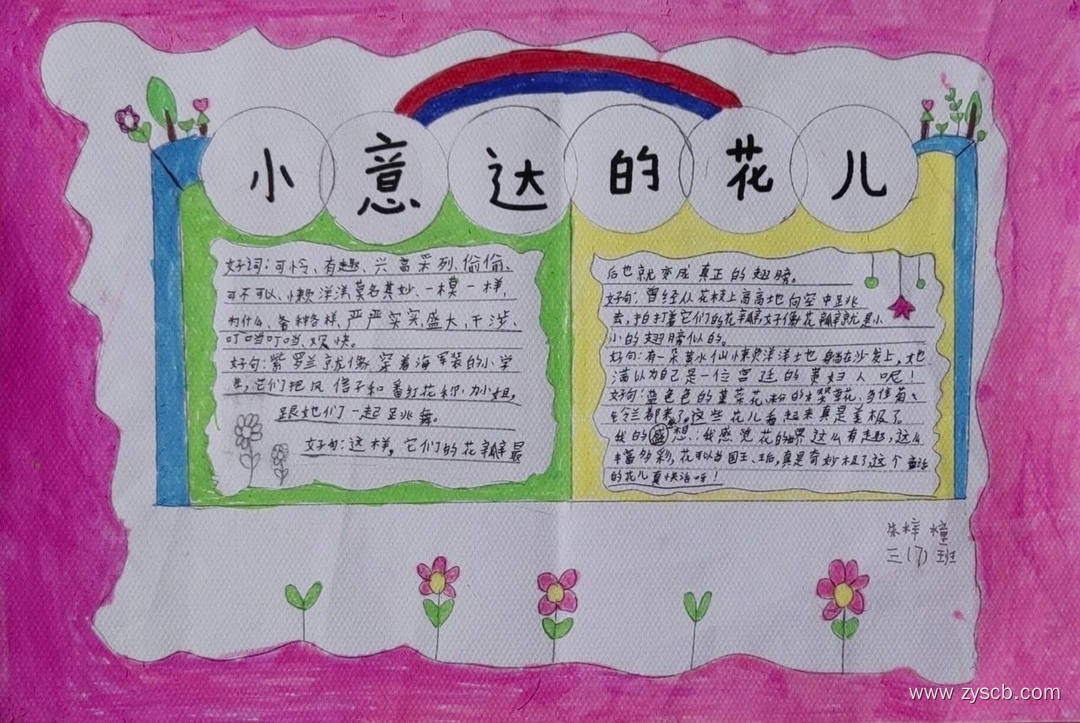 小意达的花儿
好词：可怜、有趣、兴高采列、偷偷、
可不可以、懒洋洋、莫名其妙、一模一样，
为什么、各种各样、严严实实、盛大、干涉、
叮当叮当、欢快。
好句：紫罗兰就像穿着海军装的小学
生，它们把风信子和番红花称为小姐，
跟她们一起跳舞。
好句：这样，它们的花瓣最
后也就变成真正的翅膀。
好句：曾经从花枝上高高地向空中跳
去，拍打着它们的花瓣好像花瓣就是小
小的翅膀似的。
好句：有一朵黄水仙懒洋洋地躺在沙发上，她
满以为自己是一位宫廷的贵妇人呢！
好句：蓝色的堇菜花、粉的樱草花、
铃兰都来了。这些花儿看起来真是美极了。
我的感想：我感觉花的世界这么有趣，这么
丰富多彩，花可以当国王、王后，真是奇妙极了，这个童话
的花儿真快活呀！
朱梓橦
三（7）班
www.zyscb.com